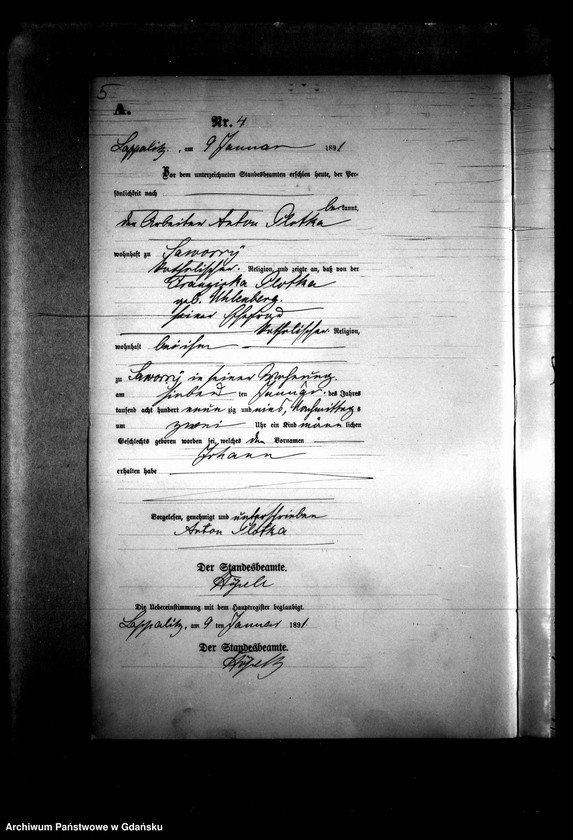 5
A.
Nr. 4
Lappalitz, am 9 Januar 1891
Vor dem unterzeichneten Standesbeamten erschien heute, der Per-
sönlichkeit nach
bekannt,
der Arbeiter Anton Plotka
wohnhaft zu Saworry
katholischer Religion, und zeigte an, daß von der
Franziska Plotka
geb. Uhlenberg,
seiner Ehefrau
katholischer Religion,
wohnhaft bei ihm
zu Saworry in seiner Wohnung
am siebenten Januar des Jahres
tausend acht hundert neunzig und eins, Nachmittags
um zwei Uhr ein Kind männlichen
Geschlechts geboren worden sei, welches den Vornamen
Johann
erhalten habe
Vorgelesen, genehmigt und unterschrieben
Anton Plotka
Der Standesbeamte.
Die Uebereinstimmung mit dem Hauptregister beglaubigt.
Lappalitz, am 9 ten Januar 1891
Der Standesbeamte.
Archiwum Państwowe w Gdańsku